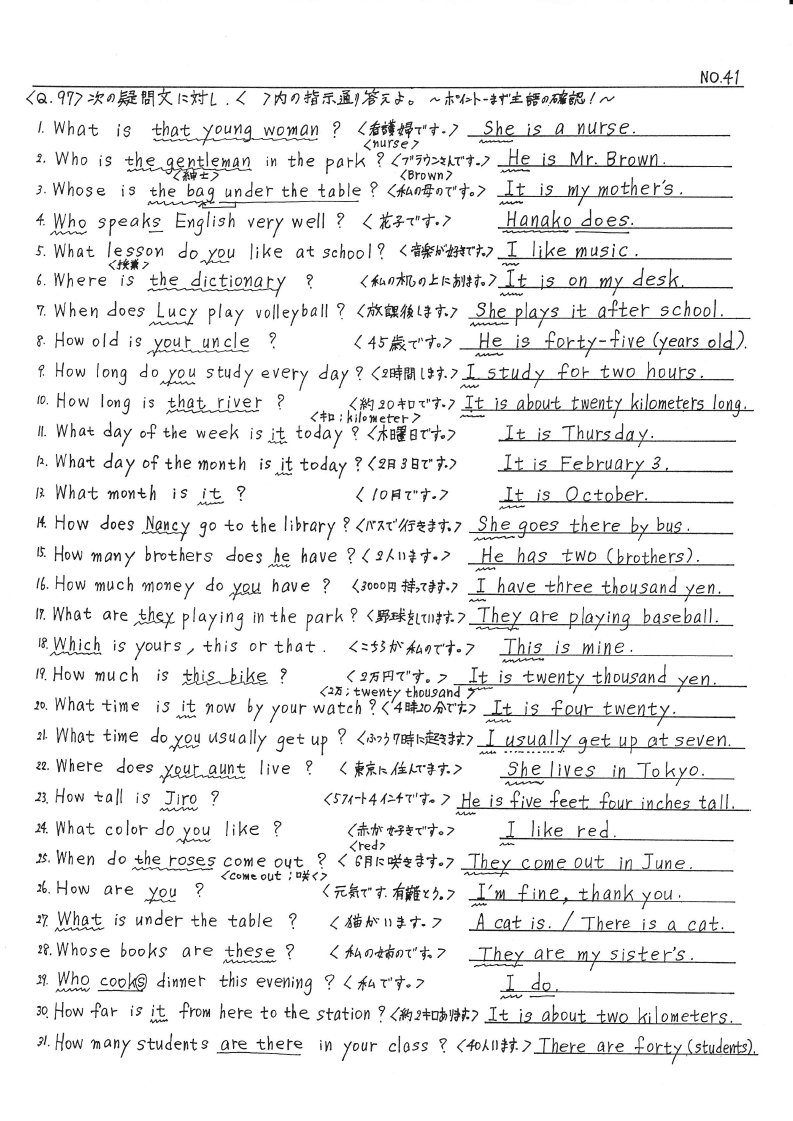 NO.41
<Q.97>次の疑問文に対し、< >内の指示通り答えよ。 ~ポイント-まず主語の確認!~
1. What is that young woman ? <看護婦です。> She is a nurse.
<nurse>
2. Who is the gentleman in the park ? <ブラウンさんです。> He is Mr. Brown.
<紳士> <Brown>
3. Whose is the bag under the table ? <私の母のです。> It is my mother's.
4. Who speaks English very well ? <花子です。> Hanako does.
5. What lesson do you like at school? <音楽が好きです。> I like music.
<授業>
6. Where is the dictionary ? <私の机の上にあります。> It is on my desk.
7. When does Lucy play volleyball ? <放課後します。> She plays it after school.
8. How old is your uncle ? <45歳です。> He is forty-five (years old).
9. How long do you study every day? <2時間します。> I study for two hours.
10. How long is that river ? <約20キロです。> It is about twenty kilometers long.
<キロ;kilometer>
11. What day of the week is it today ? <木曜日です。> It is Thursday.
12. What day of the month is it today? <2月3日です。> It is February 3.
13. What month is it ? <10月です。> It is October.
14. How does Nancy go to the library ? <バスで行きます。> She goes there by bus.
15. How many brothers does he have ? <2人います。> He has two (brothers).
16. How much money do you have ? <3000円持ってます。> I have three thousand yen.
17. What are they playing in the park ? <野球をしています。> They are playing baseball.
18. Which is yours, this or that. <こちらが私のです。> This is mine.
19. How much is this bike ? <2万円です。> It is twenty thousand yen.
<2万;twenty thousand>
20. What time is it now by your watch ? <4時20分です> It is four twenty.
21. What time do you usually get up ? <ふつう7時に起きます> I usually get up at seven.
22. Where does your aunt live ? <東京に住んでます。> She lives in Tokyo.
23. How tall is Jiro ? <5フィート4インチです。> He is five feet four inches tall.
24. What color do you like ? <赤が好きです。> I like red.
<red>
25. When do the roses come out ? <6月に咲きます。> They come out in June.
<come out ;咲く>
26. How are you ? <元気です.有難とう。> I'm fine, thank you.
27. What is under the table ? <猫がいます。> A cat is. / There is a cat.
28. Whose books are these ? <私の姉のです。> They are my sister's.
29. Who cooks dinner this evening ? <私です。> I do.
30. How far is it from here to the station ? <約2キロあります> It is about two kilometers.
31. How many students are there in your class ? <40人います。> There are forty (students).